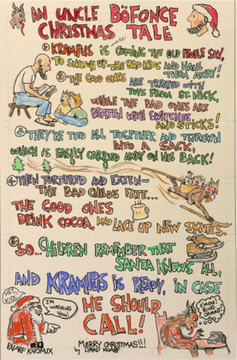 AN UNCLE BöFONCE
CHRISTMAS TALE
① KRAMPUS IS COMING THE OLD FOOLS SAY,
TO SNATCH UP THE BAD KIDS AND HAUL
THEM AWAY!
② THE GOOD ONES
ARE TREATED WITH
TOYS FROM ST. NICK,
WHILE THE BAD ONES ARE
BEATEN WITH SWITCHES
AND STICKS!
③ THEY'RE TIED ALL TOGETHER AND THROWN
INTO A SACK,
WHICH IS EASILY CARRIED AWAY ON HIS BACK!
④ THEN TORTURED AND EATEN—
THE BAD CHILDS FATE...
THE GOOD ONES
DRINK COCOA, AND LACE UP NEW SKATES.
⑤ SO... CHILDREN REMEMBER THAT
SANTA KNOWS ALL,
AND KRAMPUS IS READY, IN CASE
HE SHOULD
CALL!
I'M WATCHING
YOU!
MERRY CHRISTMAS!!!